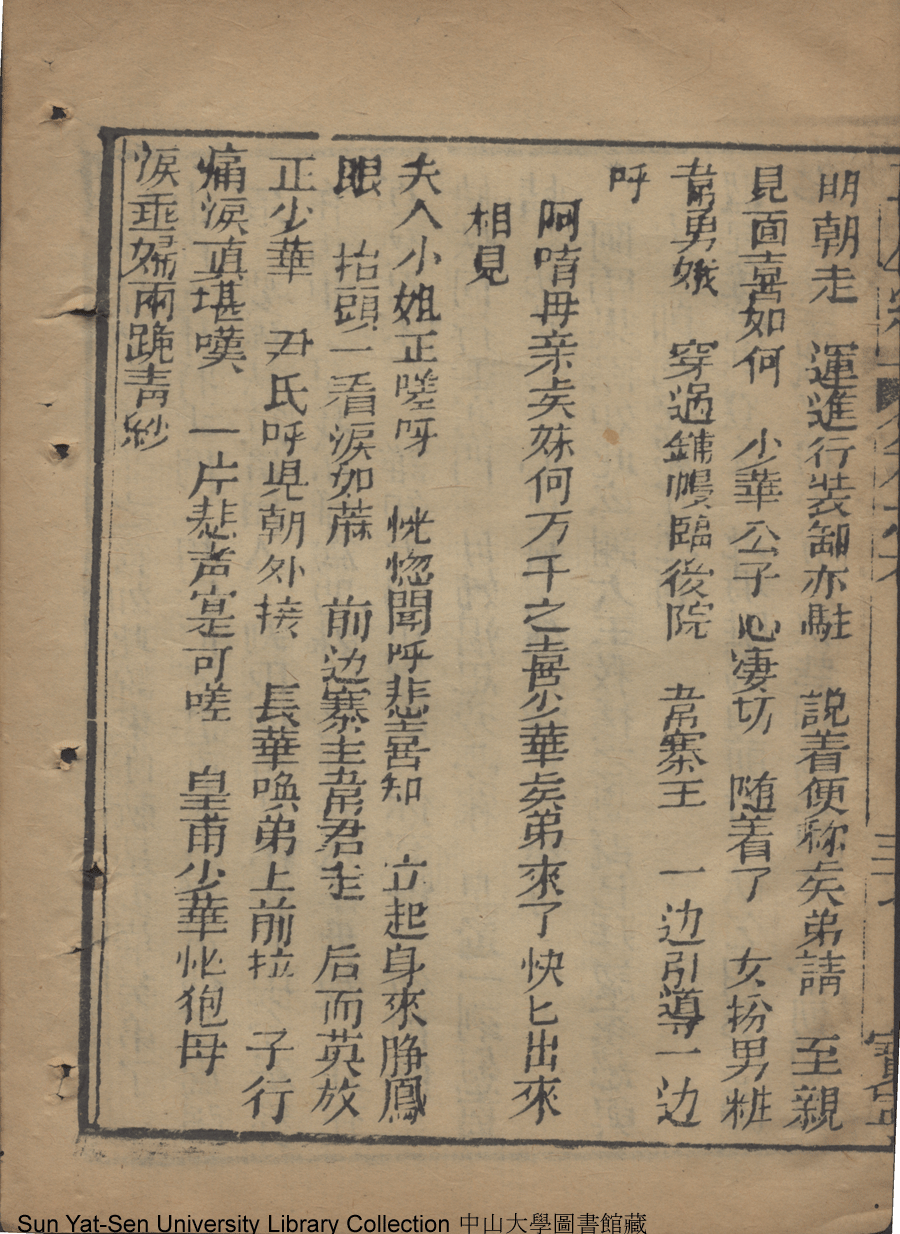 明朝走　運進行裝卸亦駐　説着便称矣弟請　至親
見面喜如何　少華公子心凄切　随着了　女扮男粧
韋勇娥　穿过鋪幔臨後院　韋寨王　一边引導一边
呼
阿唷母亲矣妹何万千之喜少華矣弟來了快匕出來
相見
夫人小姐正嗟呀　恍惚聞呼悲喜知　立起身來睁鳳
眼　抬頭一看淚如蔴　前边寨主韋君走　后而英放
正少華　尹氏呼児朝外接　長華喚弟上前拉　子行
痛淚真堪嘆　一片悲声寔可嗟　皇甫少華忙狍母
淚垂婦兩跪青紗
Sun Yat-Sen University Library Collection 中山大學圖書館藏